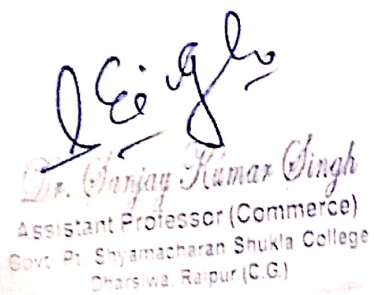 Dr. Sanjay Kumar Singh
Assistant Professor (Commerce)
Govt. Pt. Shyamacharan Shukla College
Dharsiwa, Raipur (C.G.)